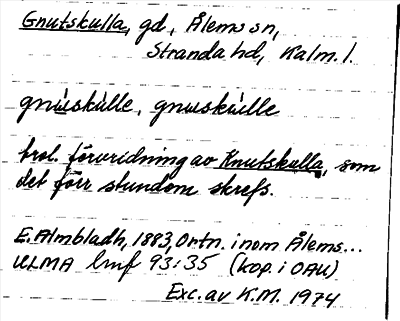 Gnutskulla, gd, Ålems sn,
Stranda hd, Kalm. l.
gnuskulle, gnuskulle
trol. förvridning av Knutskulla, som
det förr stundom skrefs.
E. Almbladh, 1883, Ortn. inom Ålems...
ULMA lmf 93:35 (kop. i OAU)
Exc. av K.M. 1974